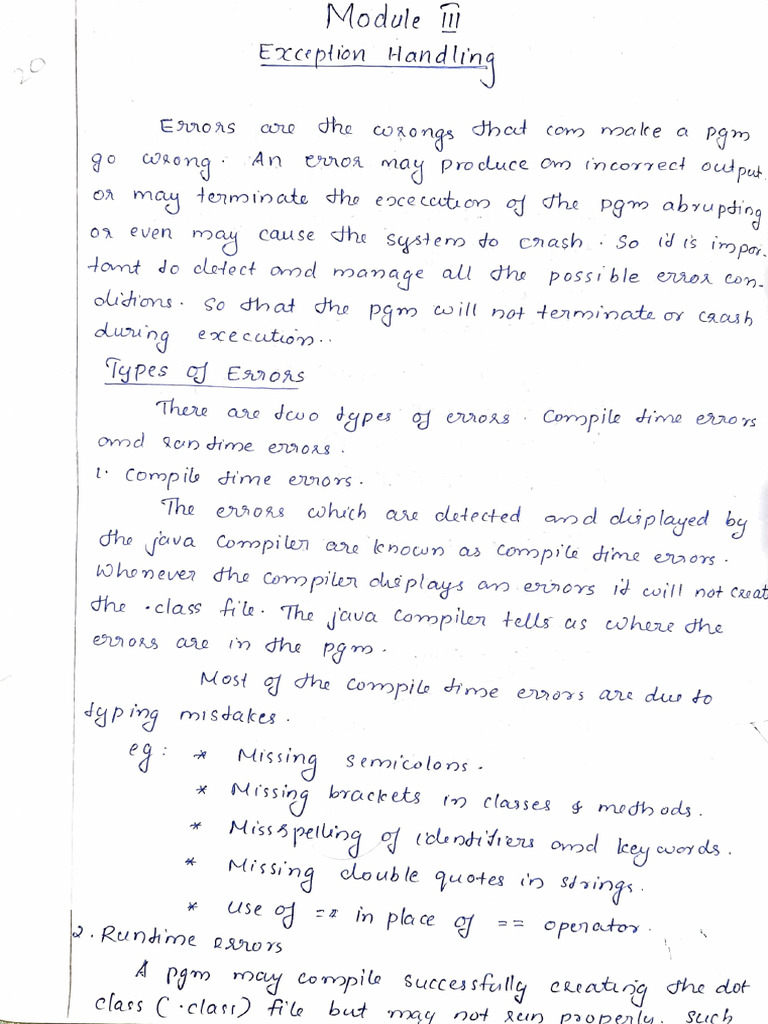 Module III
Exception Handling
20
Errors are the wrongs that can make a pgm
go wrong. An error may produce an incorrect output
or may terminate the excecution of the pgm abrupting
or even may cause the system to crash. So it is impor-
tant to detect and manage all the possible error con-
ditions. so that the pgm will not terminate or crash
during execution..
Types of Errors
There are two types of errors. Compile time errors
and run time errors.
1. Compile time errors.
The errors which are detected and displayed by
the java compiler are known as compile time errors.
Whenever the compiler displays an errors it will not creat
the .class file. The java compiler tells as where the
errors are in the pgm.
Most of the compile time errors are due to
typing mistakes.
eg: * Missing semicolons.
* Missing brackets in classes & methods.
* Missspelling of identifiers and keywords.
* Missing double quotes in strings.
* use of = in place of == operator.
2. Runtime errors
A pgm may compile successfully creating the dot
class (.class) file but may not run properly. such